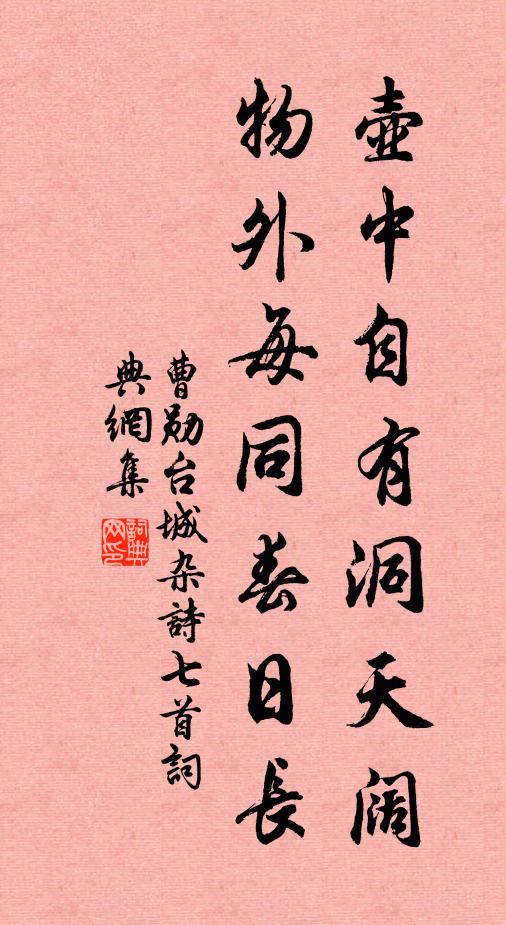 壺中自有洞天阔
物外每同春日長
曹勛台城杂詩七首詞
典網集
詞典网印